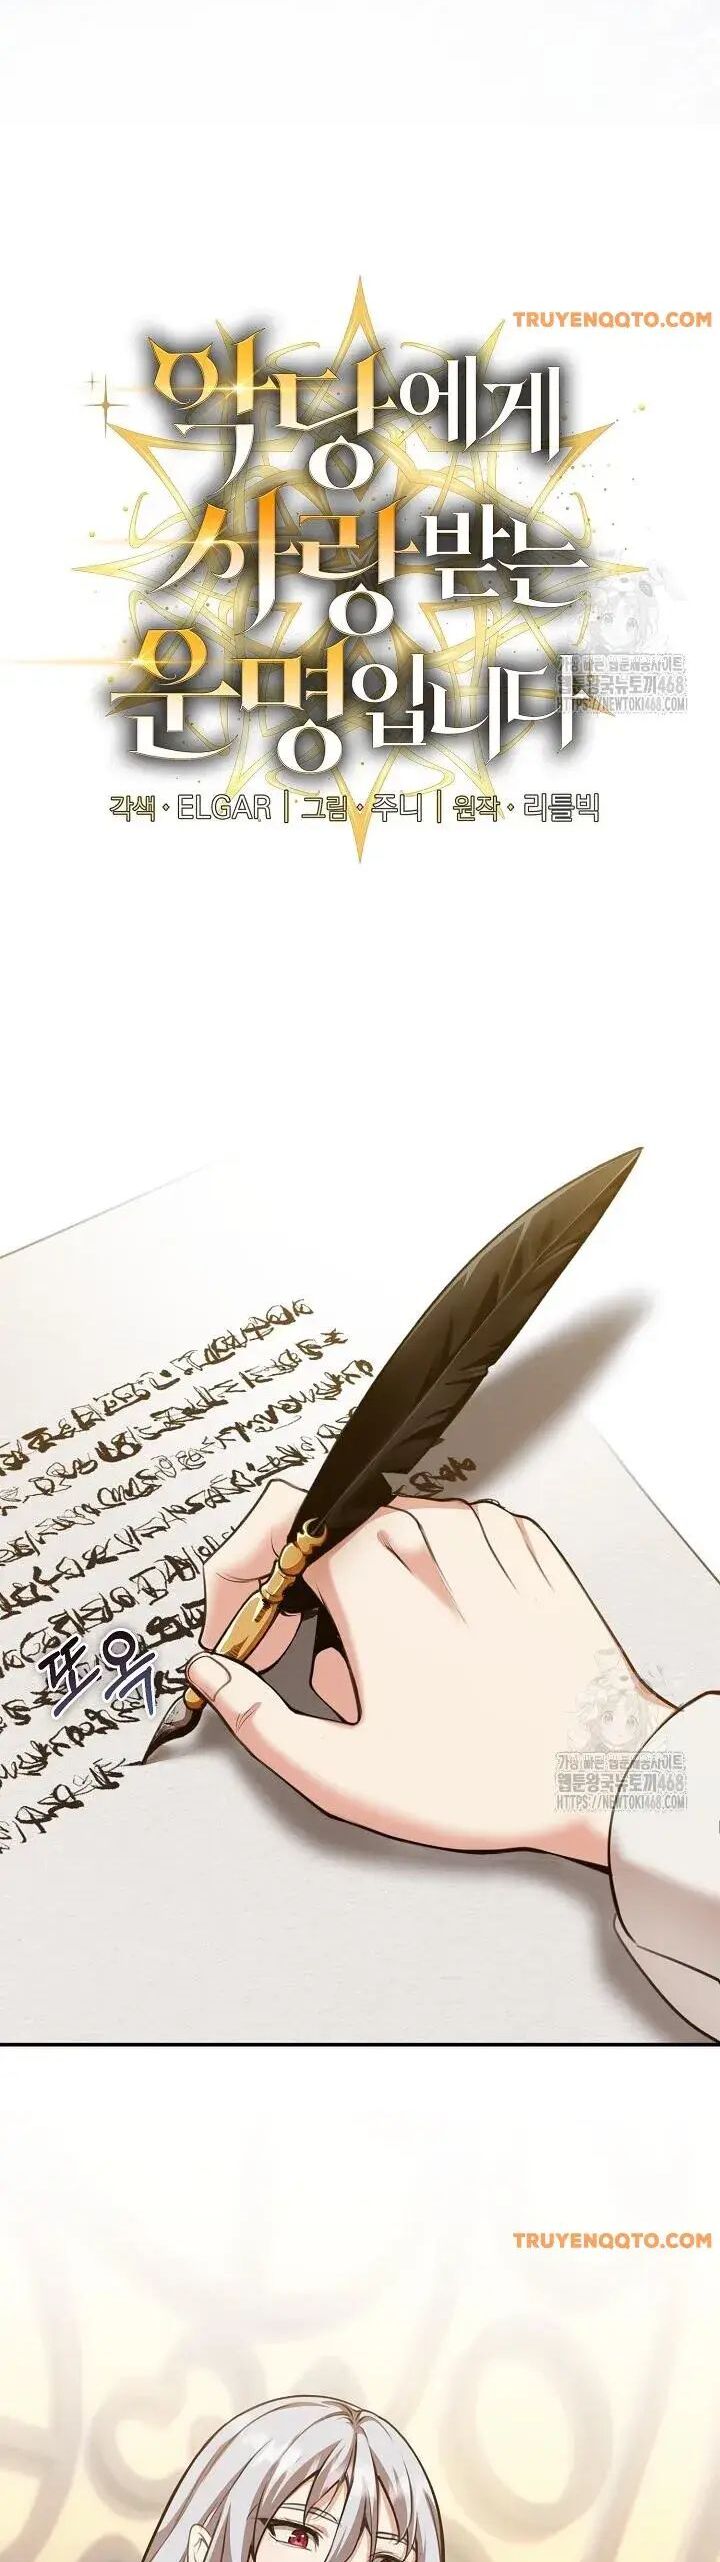 TRUYENQQTO.COM
악당에게
사랑받는
운명입니다
가장 빠른 웹툰제공사이트
웹툰왕국뉴토끼468
HTTPS://NEWTOKI468.COM
각색·ELGAR | 그림·주니 | 원작·리틀빅
또옥
가장 빠른 웹툰제공사이트
웹툰왕국뉴토끼468
HTTPS://NEWTOKI468.COM
TRUYENQQTO.COM